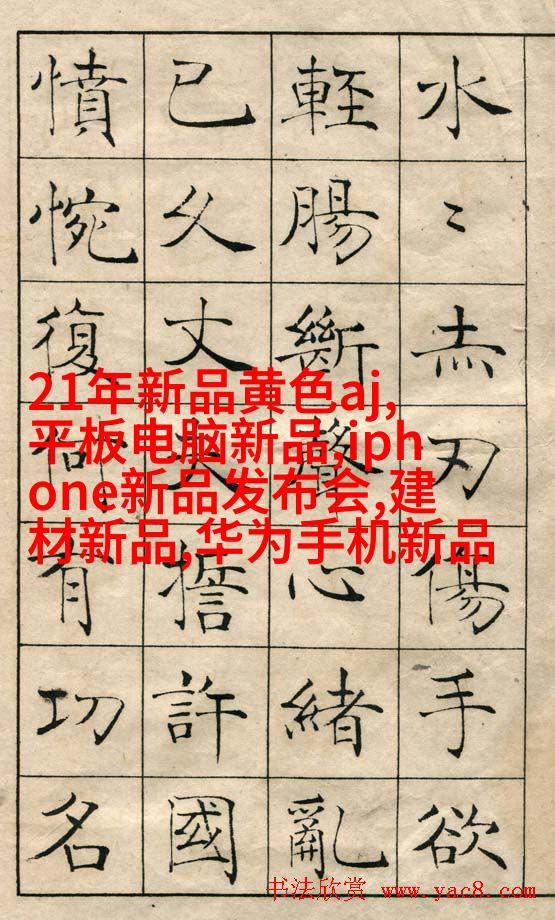 水〻赤刃傷手欲
輕腸斷聲心緒亂
已久丈夫誓許國
憤惋復何有功名
21年新品黄色aj,
平板电脑新品,iph
one新品发布会,建
材新品,华为手机新品
书法欣赏 www.yac8.com